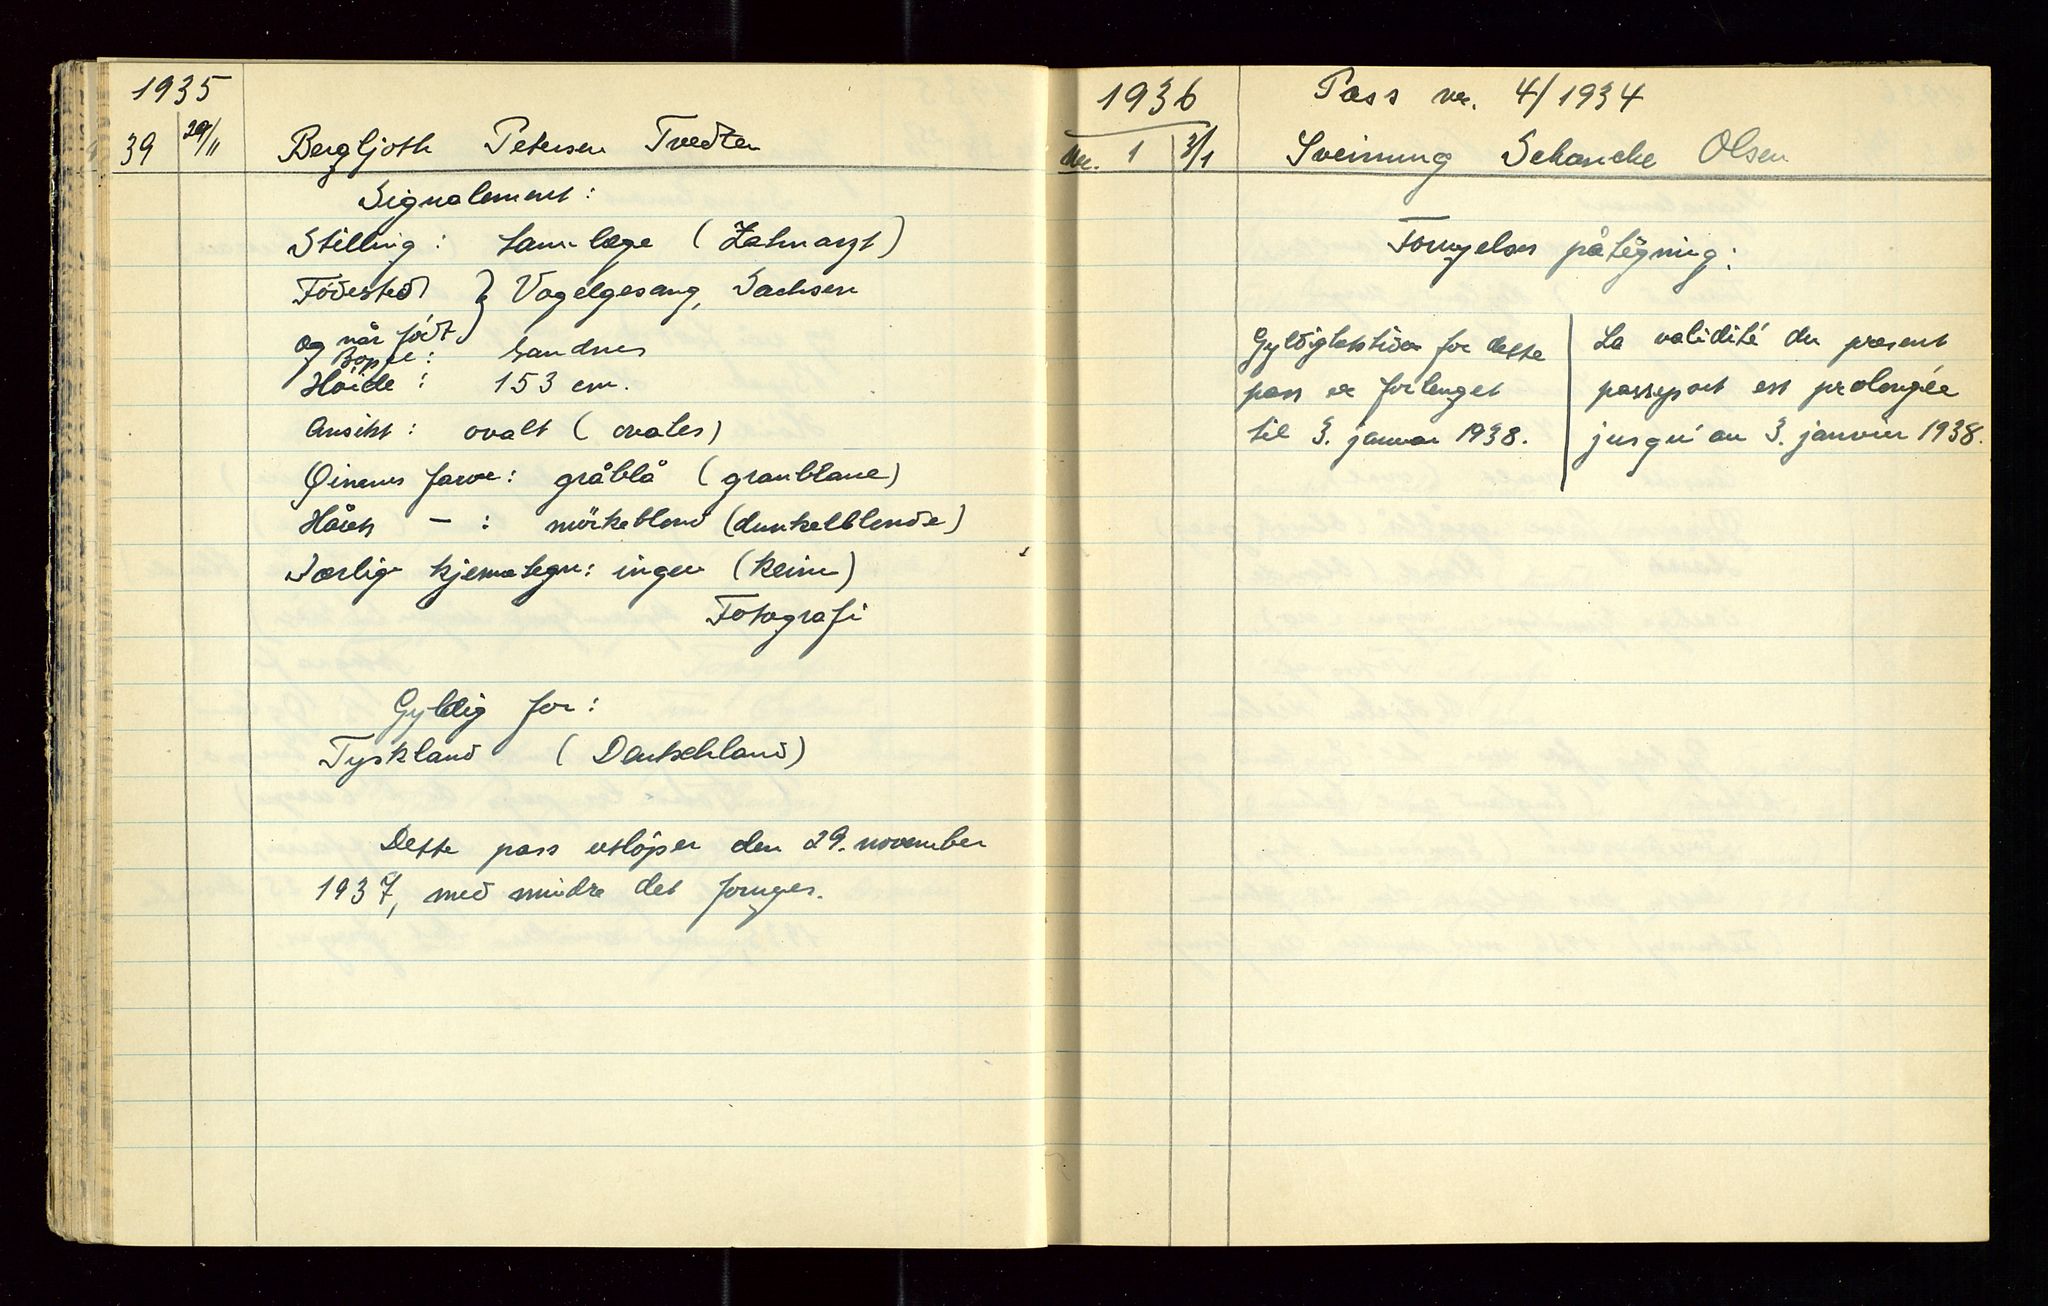 1935
39 29/11 Bergljoth Petersen Tvedten
Signalement:
Stilling: tannlæge (Zahnarzt)
Födested } Vogelgesang, Sachsen
og når födt
Bopel: Sandnes
Höide: 153 cm.
Ansikt: ovalt (ovales)
Øinenes farve: gråblå (graublaue)
Hårets — : mörkeblond (dunkelblonde)
Særlige kjennetegn: ingen (keine)
Fotografi
Gyldig for:
Tyskland (Deutschland)
Dette pass utlöper den 29. november
1937, med mindre det fornyes.
1936 Pass nr. 4/1934
Nr. 1 3/1 Sveinung Schancke Olsen
Fornyelses påtegning:
Gyldighetstiden for dette
pass er forlenget
til 3. januar 1938.
La validité du présent
passeport est prolongée
jusqu'au 3. janvier 1938.